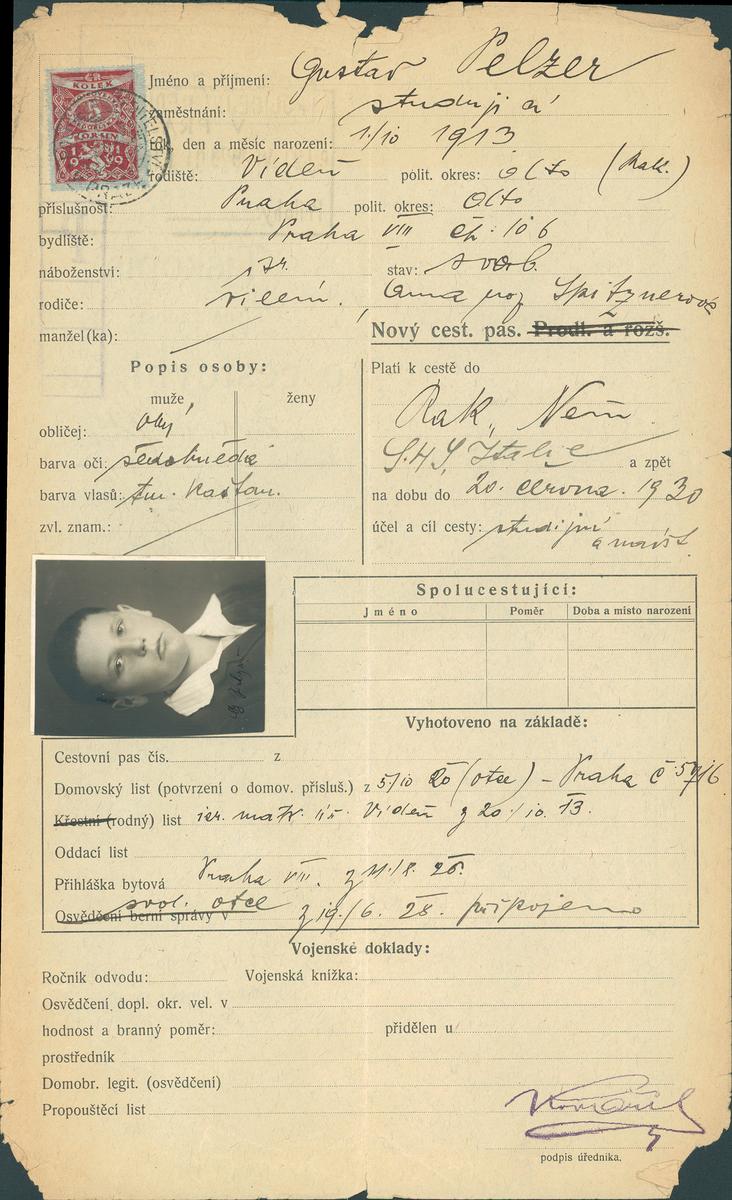 ČR
KOLEK
5
KORUN
1919
Jméno a příjmení: Gustav Pelzer
zaměstnání: studující
Rok, den a měsíc narození: 1./10 1913
rodiště: Vídeň polit. okres: dtto (Rak.)
příslušnost: Praha polit. okres: dtto
bydliště: Praha VIII čp. 106
náboženství: izr. stav: svob.
rodiče: Vilém. Anna roz Spitznerová
manžel(ka):
Nový cest. pas. Prodl. a rozš.
Popis osoby:
muže ženy
obličej: obý
barva očí: šedohnědá
barva vlasů: tm. kaštan.
zvl. znam.:
Platí k cestě do
Rak, Něm
S.H.S, Italie a zpět
na dobu do 20. června. 1930
účel a cíl cesty: studijní
a návšt.
Spolucestující:
Jméno Poměr Doba a místo narození
Vyhotoveno na základě:
Cestovní pas čís. z
Domovský list (potvrzení o domov. přísluš.) z 5/10 20 (otce) - Praha č
Křestní (rodný) list isr. matr. Vídeň z 20./10. 13.
Oddací list
Přihláška bytová Praha VIII. z
Osvědčení berní správy v svol. otce z 19./6. 28. připojeno
Vojenské doklady:
Ročník odvodu: Vojenská knížka:
Osvědčení dopl. okr. vel. v
hodnost a branný poměr: přidělen u
prostředník
Domobr. legit. (osvědčení)
Propouštěcí list
podpis úředníka.